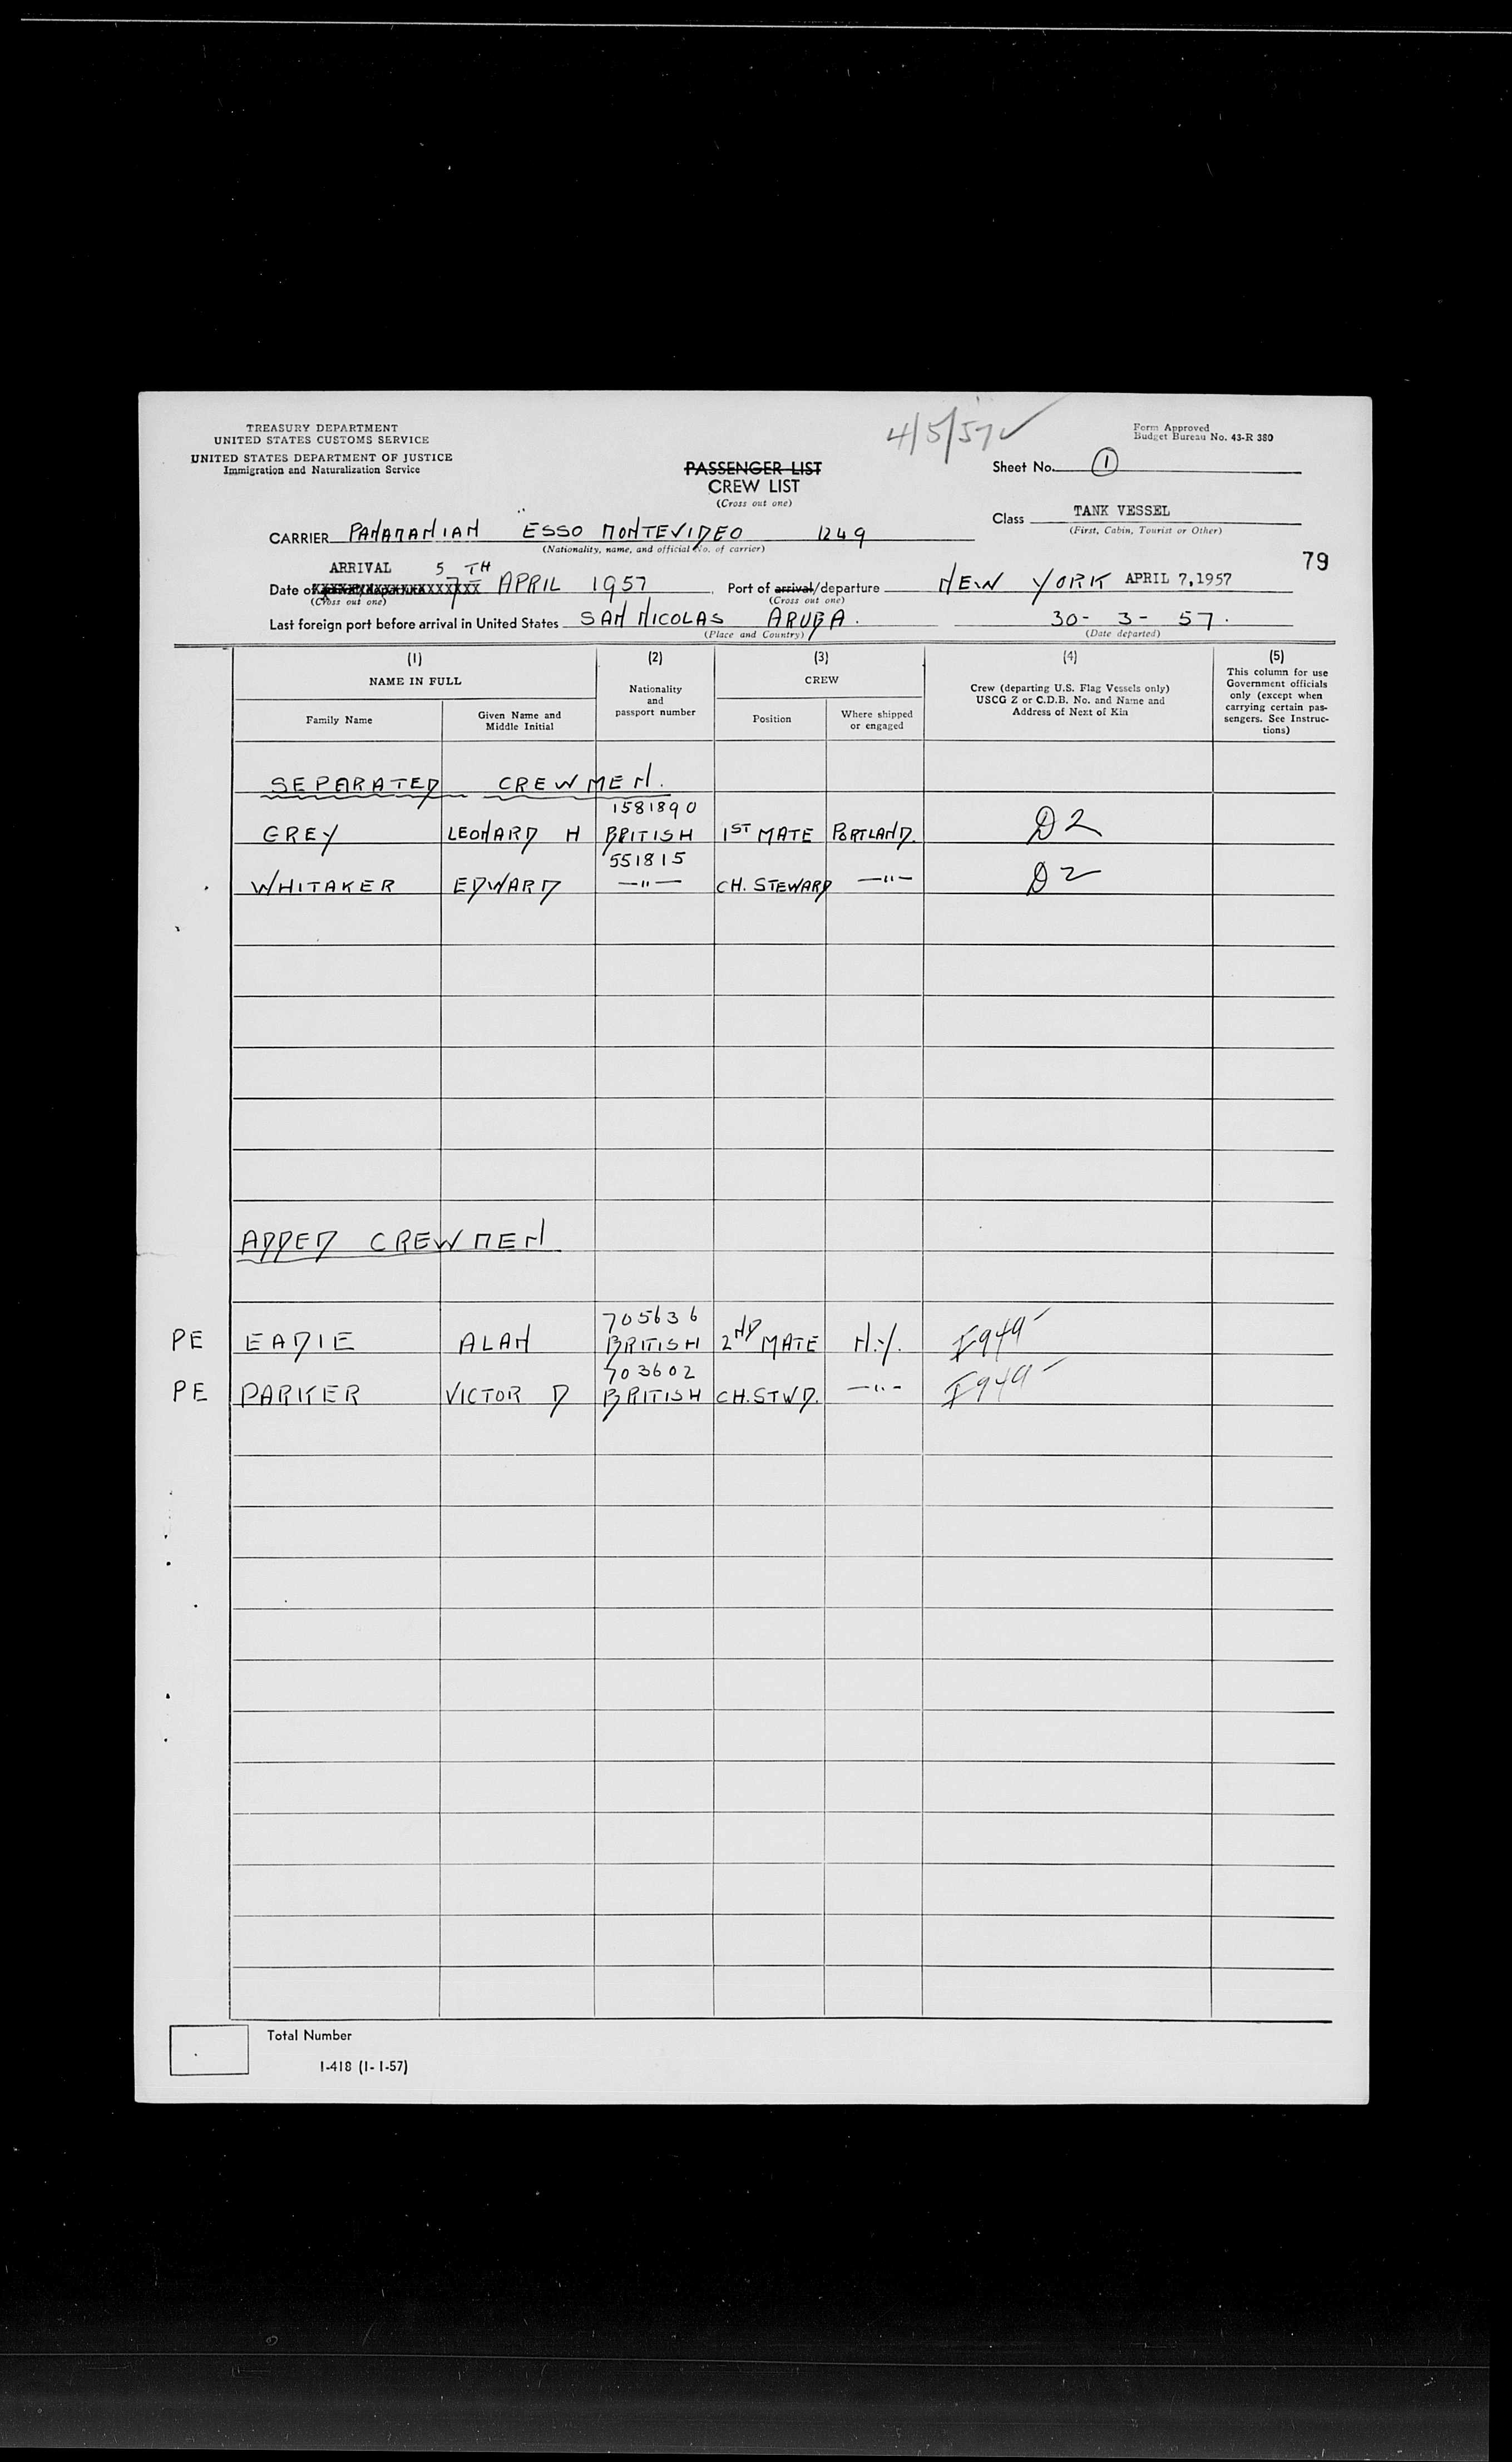 TREASURY DEPARTMENT
UNITED STATES CUSTOMS SERVICE
UNITED STATES DEPARTMENT OF JUSTICE
Immigration and Naturalization Service
4/5/57
Form Approved
Budget Bureau No. 43-R 380
PASSENGER LIST
CREW LIST
(Cross out one)
Sheet No. 1
Class TANK VESSEL
(First, Cabin, Tourist or Other)
CARRIER PANAMANIAN ESSO MONTEVIDEO 1249
(Nationality, name, and official No. of carrier)
79
ARRIVAL 5 TH
Date of 7 APRIL 1957 Port of arrival/departure NEW YORK APRIL 7,1957
(Cross out one) (Cross out one)
Last foreign port before arrival in United States SAN NICOLAS ARUBA. 30- 3- 57.
(Place and Country) (Date departed)
(1) (2) (3) (4) (5)
NAME IN FULL
Nationality and passport number
CREW
Crew (departing U.S. Flag Vessels only) USCG Z or C.D.B. No. and Name and Address of Next of Kin
This column for use Government officials only (except when carrying certain passengers. See Instructions)
Family Name Given Name and Middle Initial Position Where shipped or engaged
SEPARATED CREWMEN.
1581890
GREY LEONARD H BRITISH 1ST MATE PORTLAND. D2
551815
WHITAKER EDWARD —"— CH. STEWARD —"— D2
ADDED CREWMEN
705636
PE EADIE ALAN BRITISH 2ND MATE N.Y. I949
703602
PE PARKER VICTOR D BRITISH CH.STWD. —"— I949
Total Number
I-418 (1-1-57)